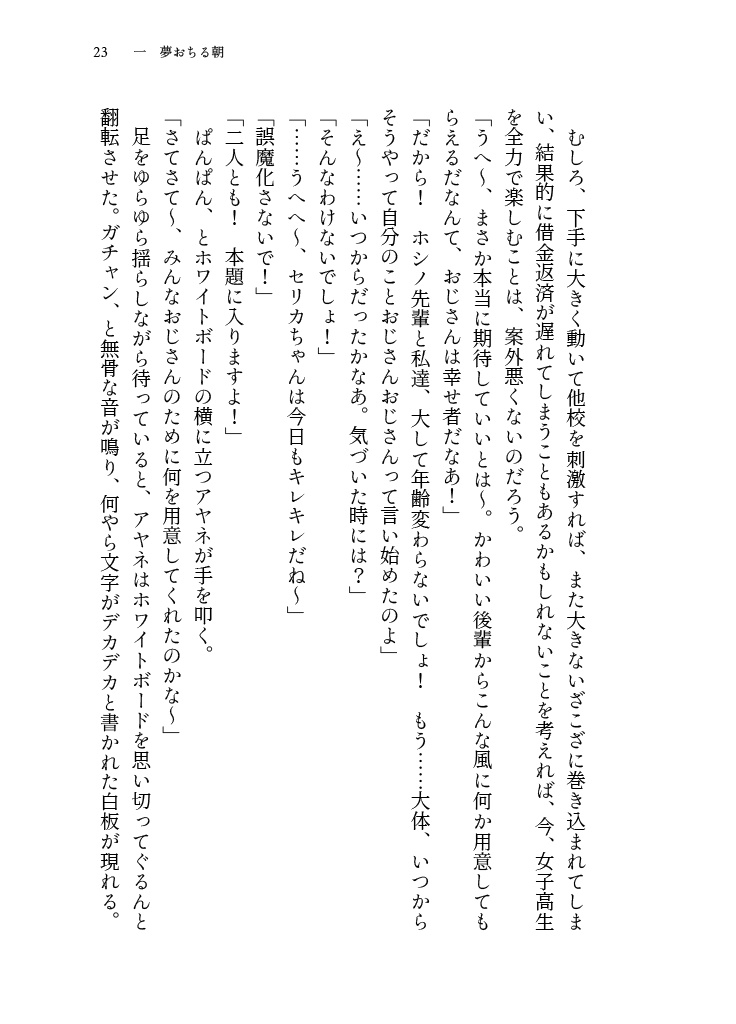 23　一　夢おちる朝
　むしろ、下手に大きく動いて他校を刺激すれば、また大きないざこざに巻き込まれてしま
い、結果的に借金返済が遅れてしまうこともあるかもしれないことを考えれば、今、女子高生
を全力で楽しむことは、案外悪くないのだろう。
「うへ〜、まさか本当に期待していいとは〜。かわいい後輩からこんな風に何か用意しても
らえるだなんて、おじさんは幸せ者だなあ！」
「だから！　ホシノ先輩と私達、大して年齢変わらないでしょ！　もう……大体、いつから
そうやって自分のことおじさんおじさんって言い始めたのよ」
「え〜……いつからだったかなあ。気づいた時には？」
「そんなわけないでしょ！」
「……うへへ〜、セリカちゃんは今日もキレキレだね〜」
「誤魔化さないで！」
「二人とも！　本題に入りますよ！」
　ぱんぱん、とホワイトボードの横に立つアヤネが手を叩く。
「さてさて〜、みんなおじさんのために何を用意してくれたのかな〜」
　足をゆらゆら揺らしながら待っていると、アヤネはホワイトボードを思い切ってぐるんと
翻転させた。ガチャン、と無骨な音が鳴り、何やら文字がデカデカと書かれた白板が現れる。